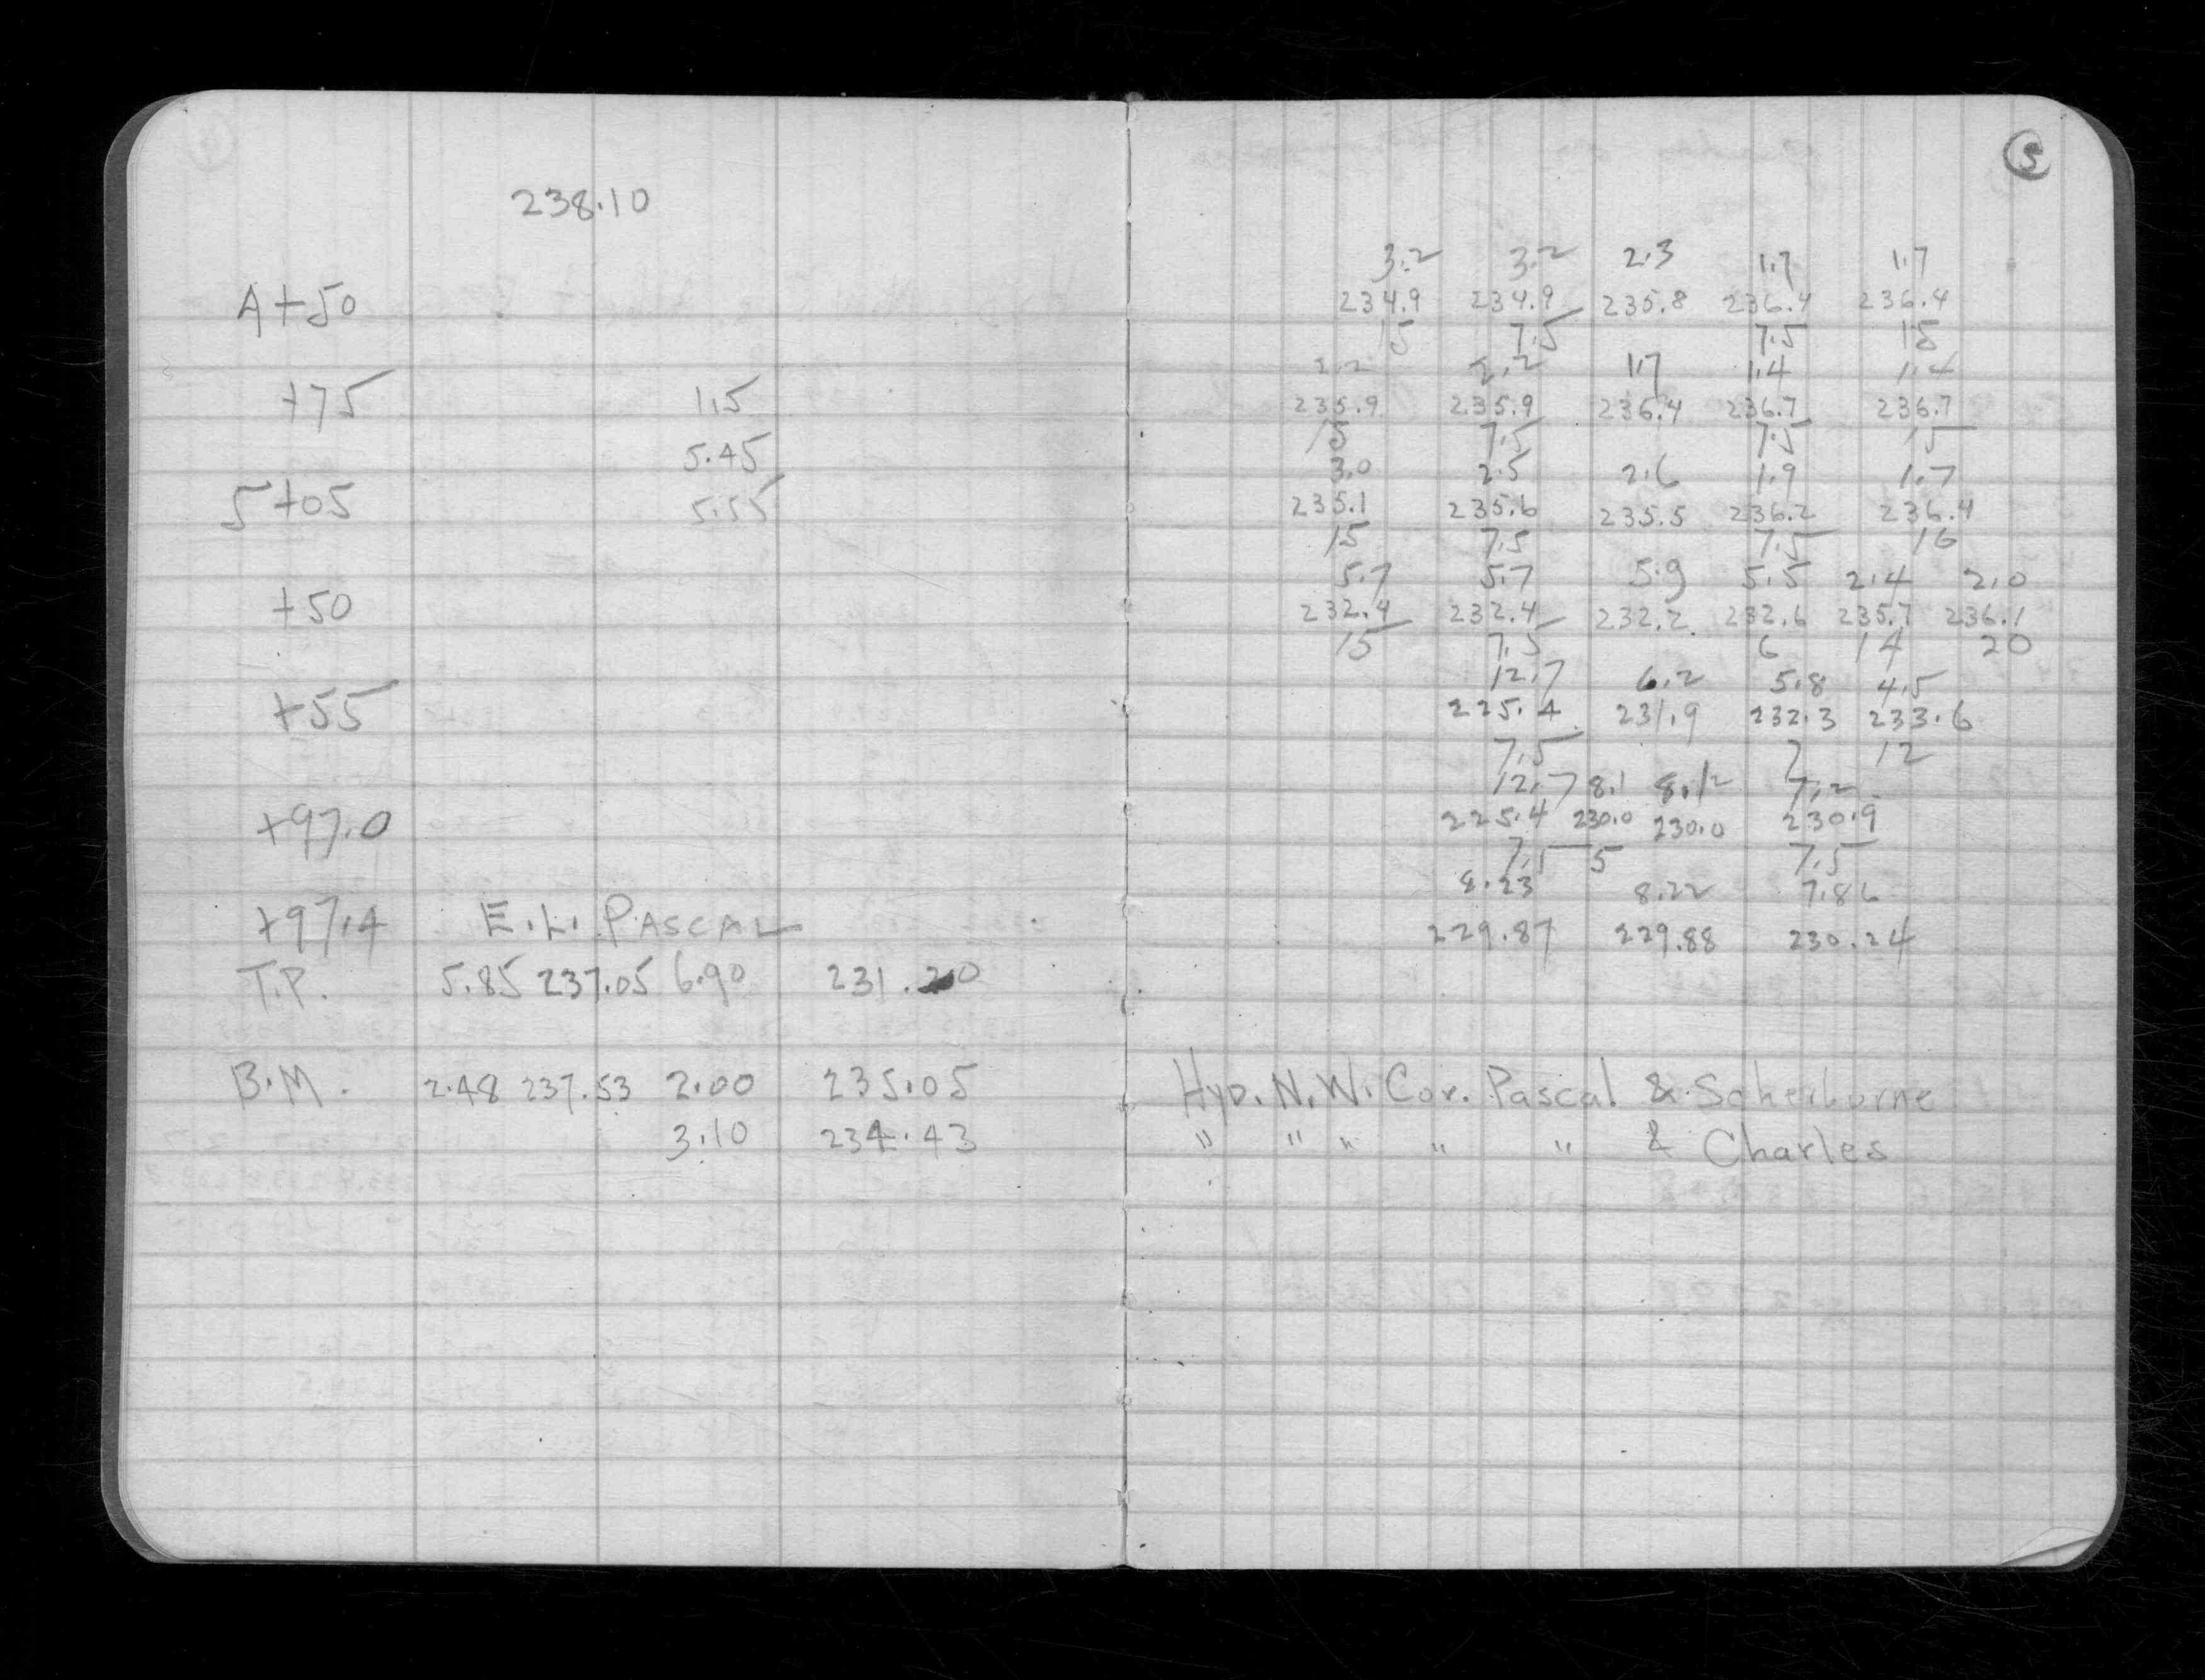 238.10
A+50
+75 1.5
5.45
5+05 5.55
+50
+55
+97.0
+97.4 E.L. PASCAL
T.P. 5.85 237.05 6.90 231.20
B.M. 2.48 237.53 2.00 235.05
3.10 234.43
5
3.2 3.2 2.3 1.7 1.7
234.9 234.9 235.8 236.4 236.4
15 7.5 7.5 15
2.2 2.2 1.7 1.4 1.4
235.9 235.9 236.4 236.7 236.7
15 7.5 7.5 15
3.0 2.5 2.6 1.9 1.7
235.1 235.6 235.5 236.2 236.4
15 7.5 7.5 16
5.7 5.7 5.9 5.5 2.4 2.0
232.4 232.4 232.2 232.6 235.7 236.1
15 7.5 6 14 20
12.7 6.2 5.8 4.5
225.4 231.9 232.3 233.6
7.5 7 12
12.7 8.1 8.12 7.2
225.4 230.0 230.0 230.9
7.5 5 7.5
8.23 8.22 7.86
229.87 229.88 230.24
Hyd. N.W. Cor. Pascal & Scherborne
" " " " " & Charles